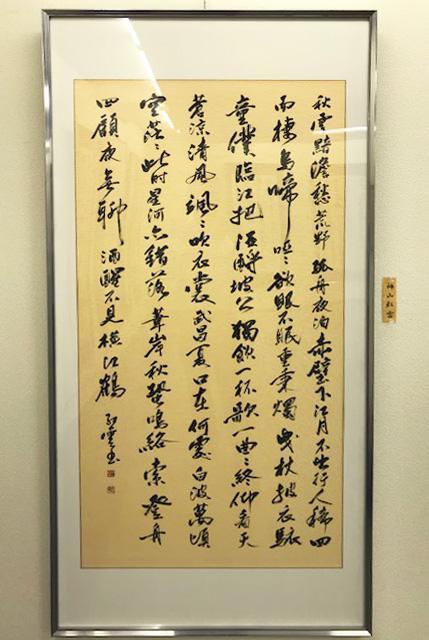 秋雲黯澹愁荒野孤舟夜泊赤壁下江月不出行人稀四
面棲烏啼啞々欲眠不眠重秉燭曳杖披衣駭
童僕臨江把酒酹坡公獨飲一杯歌一曲々終仰看天
蒼涼清風颯々吹衣裳武昌夏口在何處白波萬頃
空茫々此時星河亦錯落葦岸秋蛩鳴絡索登舟
四顧夜無聊酒醒不見橫江鶴 紅雲書
神山紅雲